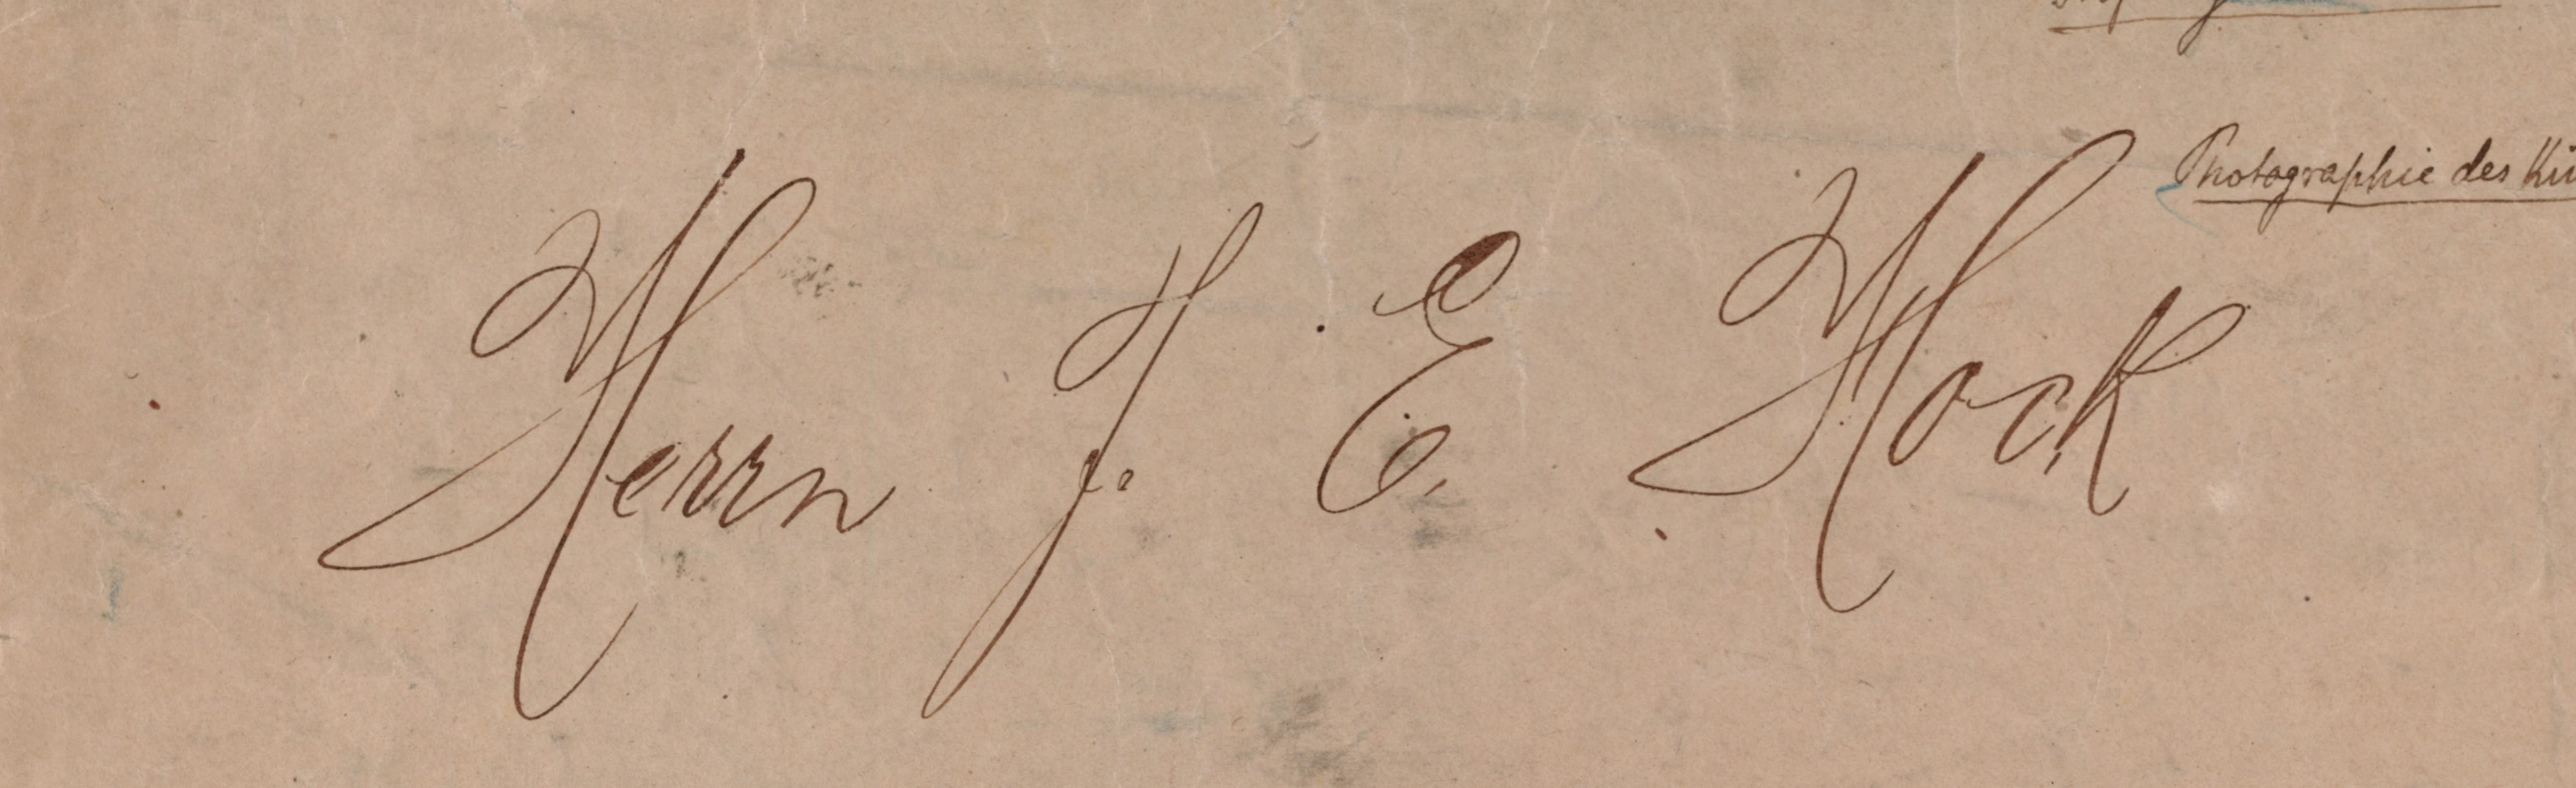 Photographie des
Herrn J. E. Hock